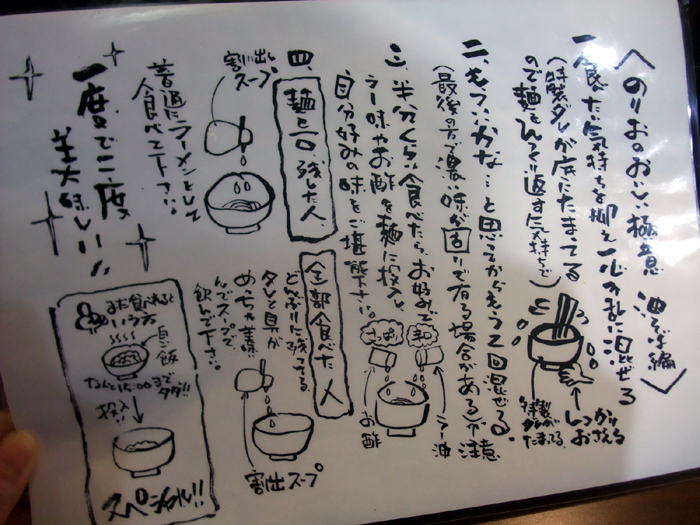 〈のりおのおいしい極意 油そば編〉
一、食べたい気持ちを抑え一心不乱に混ぜる
(特製ダレが底にたまってる
ので麺をひっくり返す気持ちで)
しっかり
おさえる
特製
ダレが
たまってる
二、もういいかな…と思ってからもう2回混ぜる。
(最後の方で濃い味が固まりで有る場合がある)ご注意
三、半分くらい食べたら、お好みで
ラー油やお酢を麺に投入し
自分好みの味をご堪能下さい。
ラー油
お酢
四、
麺を一口残した人
割り出し
スープ
普通にラーメンとして
食べて下さい。
全部食べた人
どんぶりに残ってる
タレと具が
めっちゃ美味
んでスープで
飲んで下さい。
割出スープ
一度で二度
美味しい!!
まだ食べれると
いう方
白ご飯
なんと15:00まで
タダ!!
投入!!